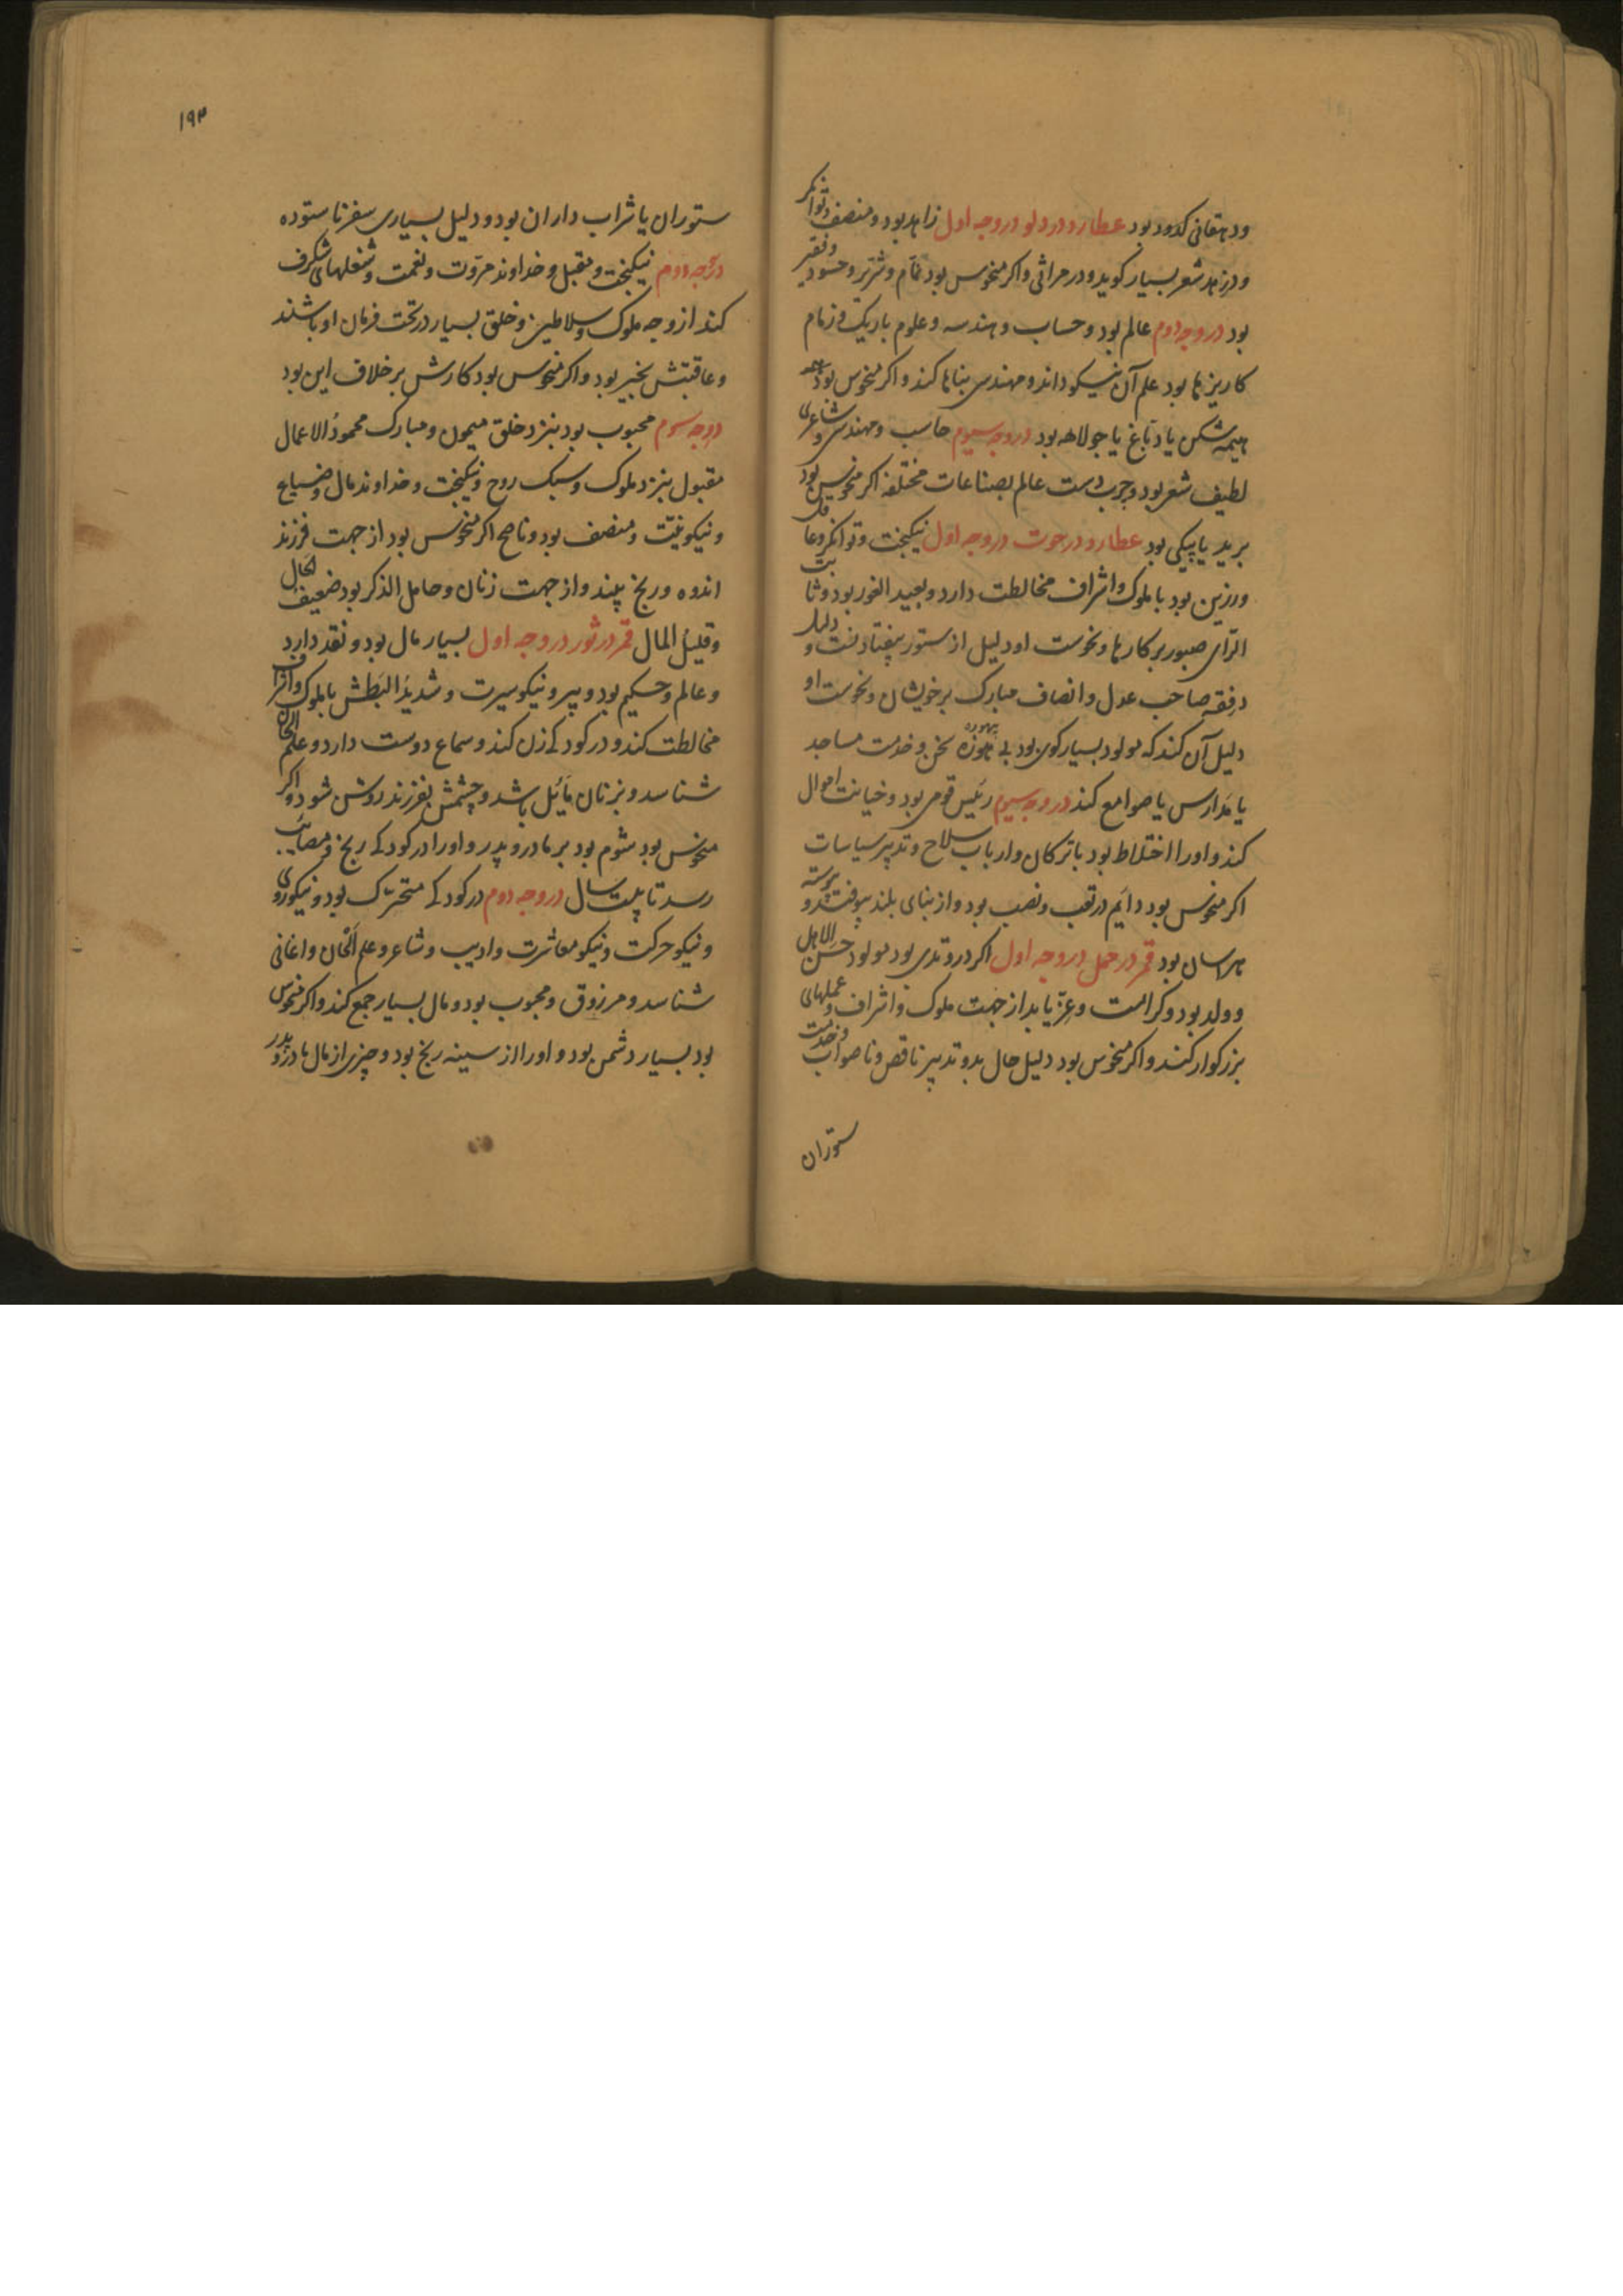 ودهقانی کدود بود عطارد در دلو در وجه اول زاهد بود ومنصف وتوانکر
ودر زهد شعر بسیار کوید ودر مراثی واکر منحوس بود نمّام وشرّیر وحسود وفقیر
بود در وجه دوم عالم بود وحساب وهندسه وعلوم باریک وزمام
کاریزها بود علم آن نیکو داند ومهندسی بناها کند واکر منحوس بود
هیمه شکن یا دبّاغ یا جولاهه بود در وجه سیوم حاسب ومهندس وشاعری
لطیف شعر بود وچرب دست عالم بصناعات مختلفه اکر منحوس بود
برید یا پیکی بود عطارد در حوت در وجه اول نیکبخت وتوانکر وعاقل
ورزین بود با ملوک واشراف مخالطت دارد وبعید الغور بود وثابت
الرّای صبور بر کارها ونحوست او دلیل از ستور بیفتادنست ودلیل
در فقه صاحب عدل وانصاف مبارک بر خویشان ونحوست او
دلیل آن کند که مولود بسیار کوی بود بیهوده سخن وخدمت مساجد
یا مدارس یا صوامع کند در وجه سیوم رئیس قومی بود وخیانت اموال
کند واو را اختلاط بود با ترکان وارباب سلاح وتدبیر سیاسات
اکر منحوس بود دایم در تعب ونصب بود واز بنای بلند بیوفتد وپیوسته
هراسان بود قمر در حمل در وجه اول اکر در وتدی بود مولود حسن الاهل
وولد بود وکرامت وعزّ یابد از جهت ملوک واشراف وعملهای
بزرکوار کند واکر منحوس بود دلیل حال بد وتدبیر ناقص وناصواب وخدمت
ستوران
۱۹۳
ستوران یا شراب داران بود ودلیل بسیاری سفر ناستوده
در وجه دوم نیکبخت ومقبل وخداوند مروّت ونعمت وشغلهای شکرف
کند از وجه ملوک وسلاطین وخلق بسیار در تحت فرمان او باشند
وعاقبتش بخیر بود واکر منحوس بود کارش بر خلاف این بود
در وجه سوم محبوب بود بنزد خلق میمون ومبارک محمود الاعمال
مقبول بنزد ملوک وسبک روح ونیکبخت وخداوند مال وضیاع
ونیکو نیّت ومنصف بود وناصح اکر منحوس بود از جهت فرزند
اندوه ورنج بیند واز جهت زنان وخامل الذکر بود ضعیف الحال
وقلیل المال قمر در ثور در وجه اول بسیار مال بود ونقد دارد
وعالم وحکیم بود وپیر ونیکو سیرت وشدید البطش با ملوک واشراف
مخالطت کند ودر کودکے زن کند وسماع دوست دارد وعلم الحان
شناسد وبزنان مائل باشد وچشمش بفرزند روشن شود واکر
منحوس بود شوم بود بر مادر وپدر واو را در کودکے رنج ومصائب
رسد تا بیست سال در وجه دوم در کودکے متحرّک بود ونیکو روی
ونیکو حرکت ونیکو معاشرت وادیب وشاعر وعلم الحان واغانی
شناسد ومرزوق ومحبوب بود ومال بسیار جمع کند واکر منحوس
بود بسیار دشمن بود واو را از سینه رنج بود وچیزی از مال مادر وپدر